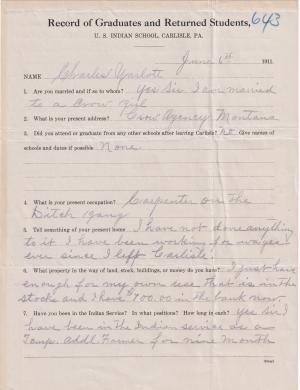 643
Record of Graduates and Returned Students,
U. S. INDIAN SCHOOL, CARLISLE, PA.
June 6th 1911.
NAME Charles Yarlott
1. Are you married and if so to whom? Yes Sir I am married
to a Crow girl
2. What is your present address? Crow Agency Montana
3. Did you attend or graduate from any other schools after leaving Carlisle? No Give names of
schools and dates if possible None.
4. What is your present occupation? Carpenter on the
Ditch gang
5. Tell something of your present home I have not done anything
to it I have been working for wages
ever since I left Carlisle.
6. What property in the way of land, stock, buildings, or money do you have? I just have
enough for my own use that is in the
stocks and I have $700.00 in the bank now.
7. Have you been in the Indian Service? In what positions? How long in each? Yes Sir I
have been in the Indian service as a
Temp. Addl. Farmer for nine month